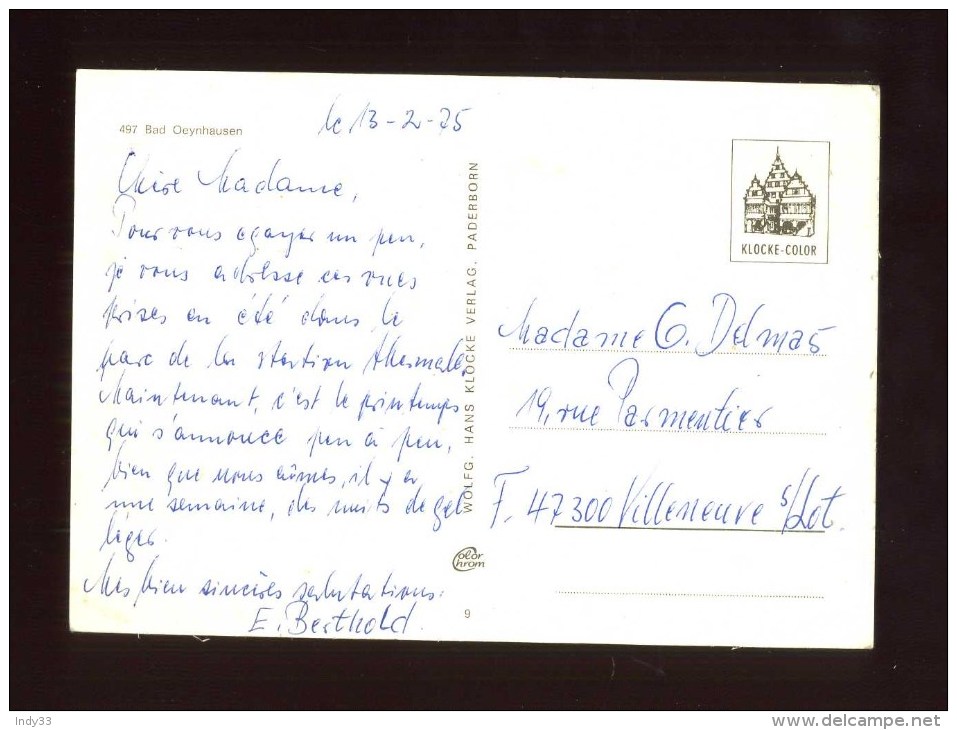 497 Bad Oeynhausen
le 13-2-75
Chère Madame,
Pour vous égayer un peu,
je vous adresse ces vues
prises en été dans le
parc de la station thermale.
Maintenant, c'est le printemps
qui s'annonce peu à peu,
bien que nous eûmes, il y a
une semaine, des nuits de gel
léger.
Mes bien sincères salutations.
E. Berthold.
WOLFG. HANS KLOCKE VERLAG, PADERBORN
Color
Chrom
9
KLOCKE-COLOR
Madame G. Delmas
19, rue Parmentier
F. 47300 Villeneuve s/Lot.
Indy33
www.delcampe.net